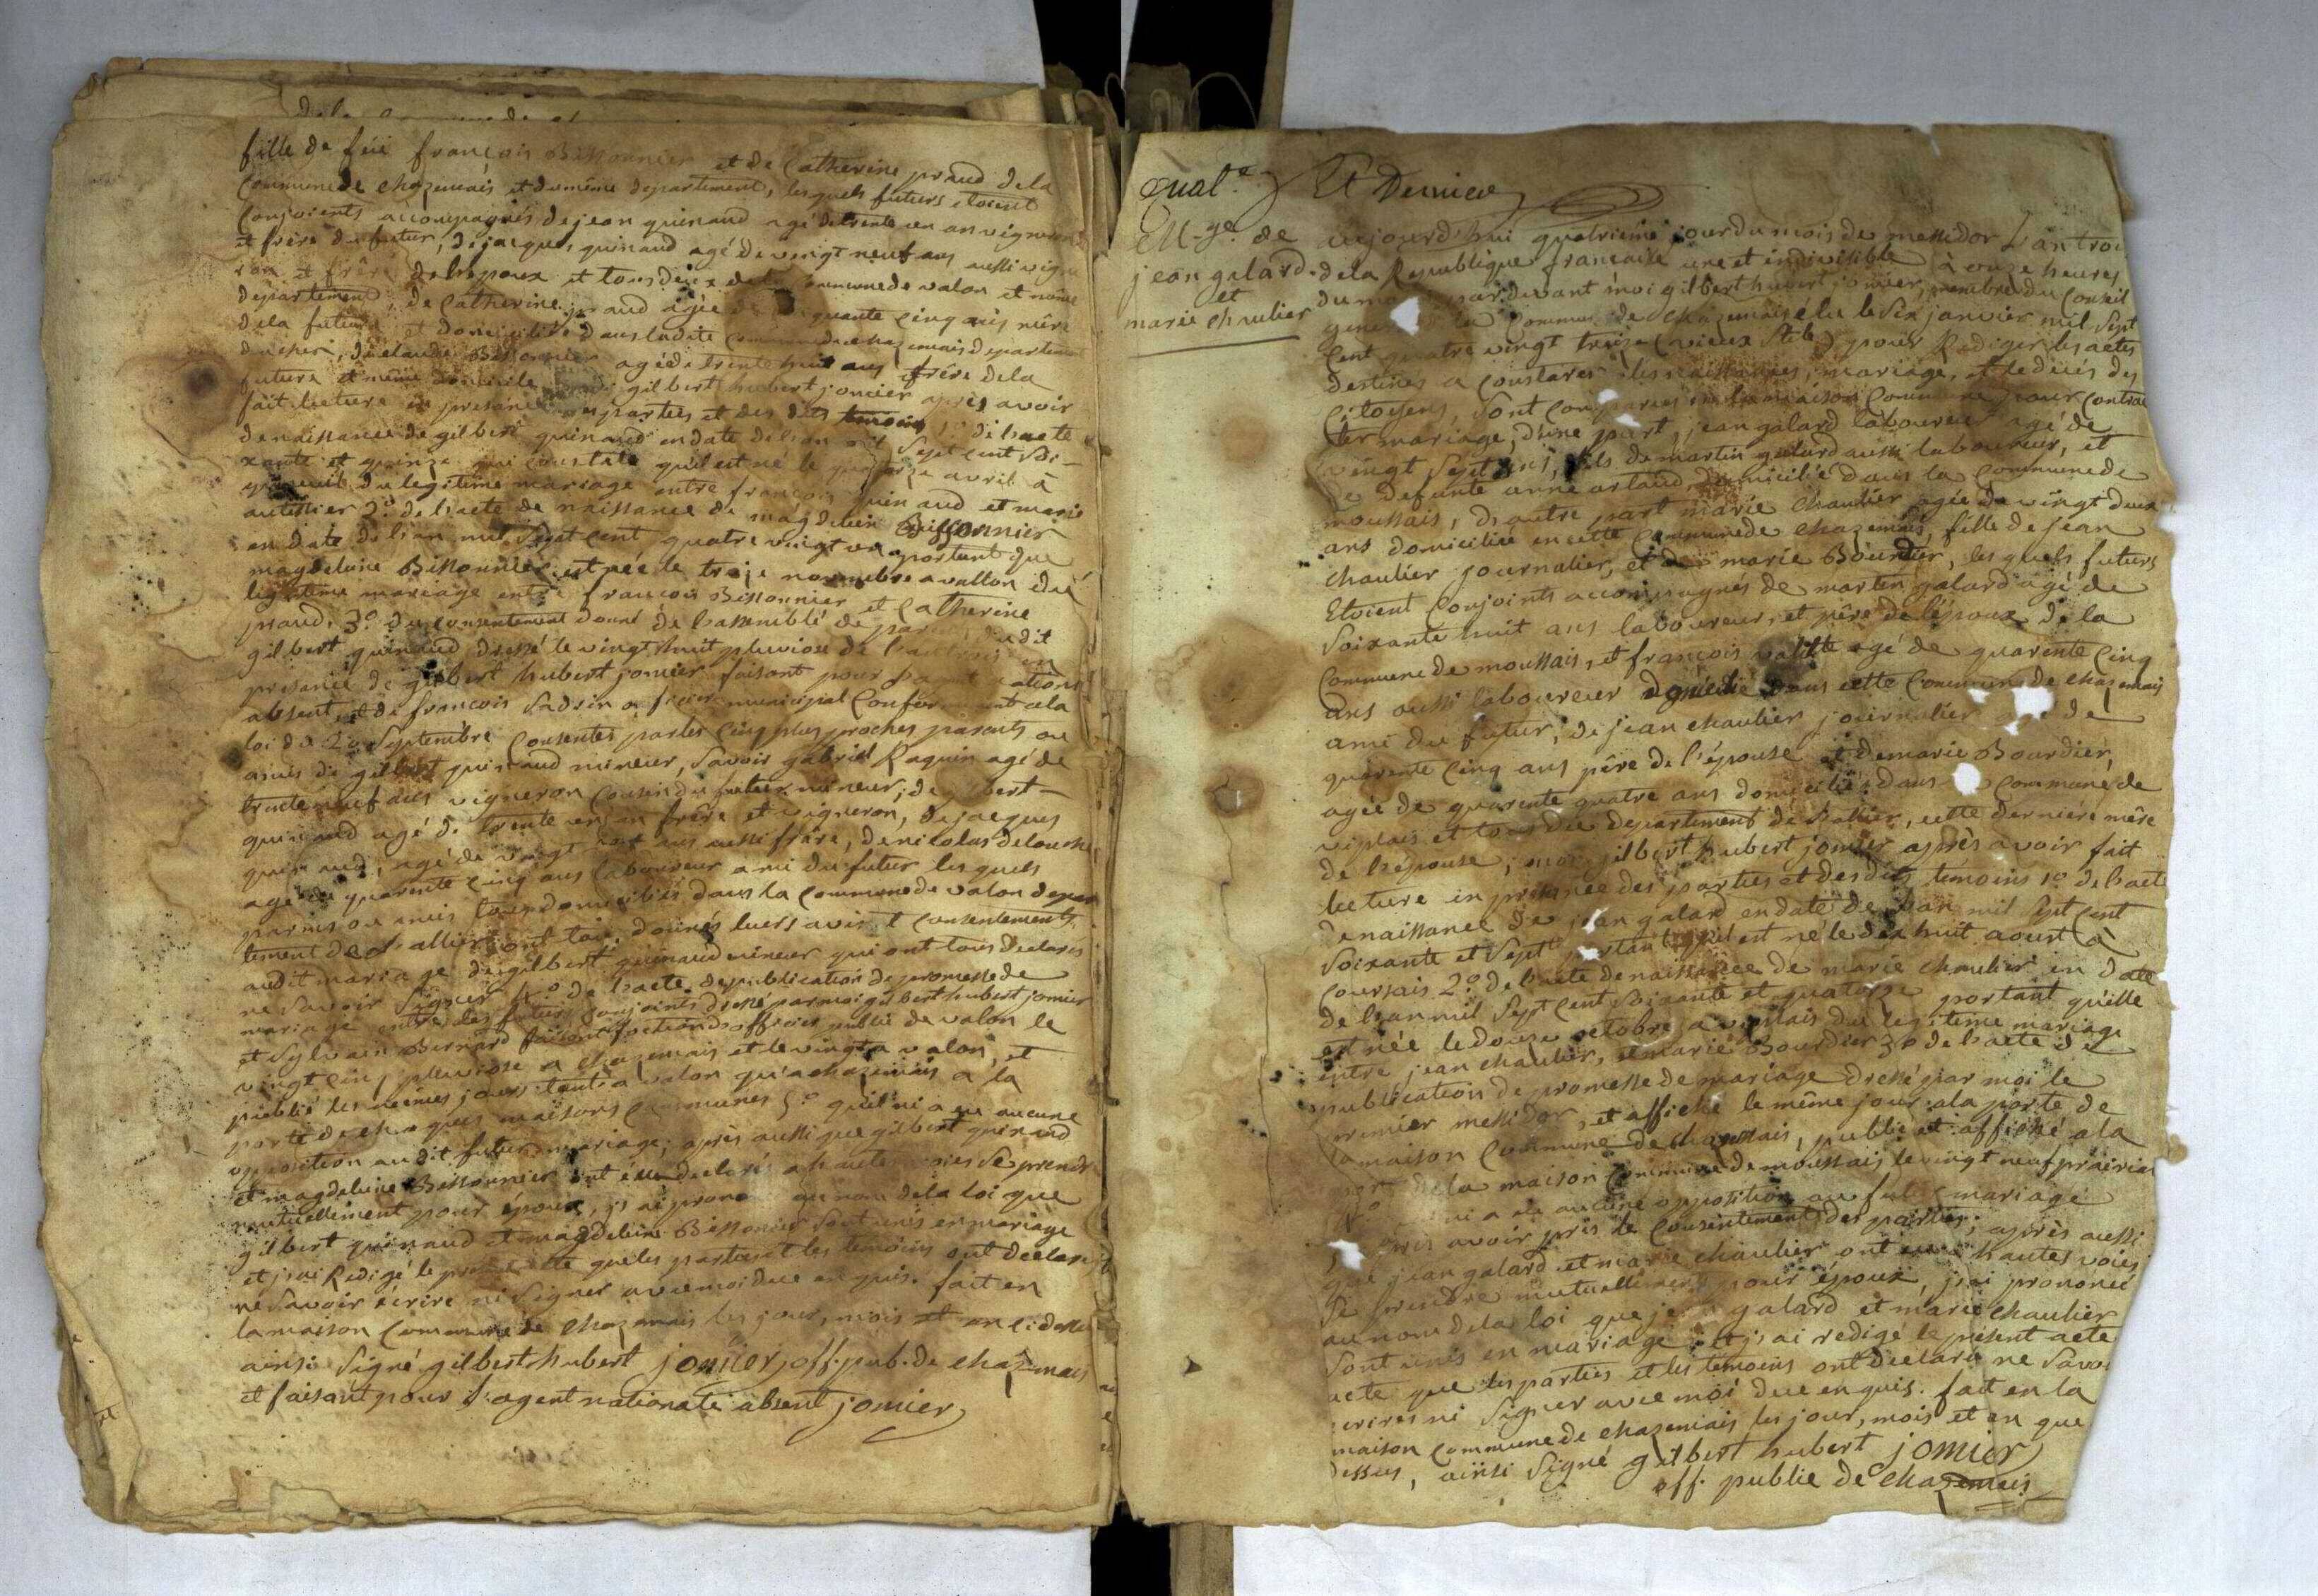 fille de feü françois Bissonnier et de Catherine praud dela
Commune de chazemais et du même departement, lesquels futurs etoient
Conjoints accompagnés de jean quinaud agé de trente un an vigneron
et frère du futur, de jacques quinaud agé de vingt neuf ans aussi vigne
ron et frère de l'epoux et tous deux de la Commune de valon et même
departement, de Catherine praud agée de Cinq ans mère
dela future et domiciliée dans ladite Commune de chazemais departement
du cher, de claude Bissonnier agé de trente huit ans frére dela
future et même domicile gilbert hubert jomier après avoir
fait lecture en presence des parties et des dits temoins 1º de l'acte
de naissance de gilbert quinaud en date de l'an mil Sept cent soi-
xante et quinze qui constate qu'il est né le avril à
du legitime mariage entre françois quinaud et marie
autissier 2º de l'acte de naissance de magdelein Bissonnier
en date de l'an mil Sept Cent quatre vingt un portant que
magdeleine Bissonnier est née le treize novembre a vallon du
legitime mariage entre françois Bissonnier et Catherine
praud, 3º du consentement donné de l'assemblé de parens dudit
gilbert quinaud dressé le vingt huit pluviose de l'an trois en
presence de gilbert hubert jomier faisant pour l'agent national
absent, et de françois officier municipal Conformement ala
loi du 20 Septembre Consentés par les Cinq plus proches parents ou
amis de gilbert quinaud mineur, Savoir gabriel Raquin agé de
trente neuf ans vigneron Cousin du futur mineur, de gilbert
quinaud agé de trente un an frère et vigneron, de jacques
quinaud, agé de vingt neuf ans aussi frère, de nicolas delouche
agé de quarente Cinq ans laboureur ami du futur les quels
parens ou amis tous domiciliés dans la Commune de valon depar
tement de l'allier ont tous donnés leurs avis et Consentements
audit mariage de gilbert quinaud mineur qui ont tous declarés
ne Savoir Signer 4º de l'acte de publication de promesse de
mariage entre les futurs Conjoints dressé par moi gilbert hubert jomier
et Sylvain Bernard faisant fonctions d'officier public de valon le
vingt Cinq pluviose a chazemais et le vingt a valon, et
publié les mêmes jours tant a valon qu'a chazemais a la
porte de chaques maisons Communes 5º quil ni a eu aucune
opposition au dit futur mariage, après aussi que gilbert quinaud
et magdeleine Bissonnier ont eu declarés a haute voies Se prendre
mutuellement pour époux, j'ai prononcé au nom de la loi que
gilbert quinaud et magdelein Bissonnier Sont unis en mariage
et j'ai Redigé le present acte que les parties et les temoins ont declaré
ne Savoir écrire ni Signer avec moi duc enquis. fait en
la maison Commune de chazemais les jour, mois et an ci dessus
ainsi Signé gilbert hubert jomier off. pub. de chazemais
et faisant pour l'agent nationale absent jomier
qual.e Et Dernier
M-ge. de
jean galard
et
marie chaulier
aujourd'hui quatrieme jour du mois de messidor L'an trois
dela Republique francaise une et indivisible à onze heures
du matin pardevant moi gilbert hubert jomier, membre du Conseil
general de la Commune de chazemais élu le Six janvier mil Sept
Cent quatre vingt treize (vieux Stile) pour Rediger les actes
destinés a Constater les naissances, mariage, et le deces des
Citoyens, Sont comparus en la maison Commune pour Contrac
ter mariage, d'une part, jean galard laboureur agé de
vingt Sept ans, fils de martin galard aussi laboureur, et
de defunte anne artaud, domicilié dans la Commune de
moussais, d'autre part marie chaulier agée de vingt deux
ans domiciliée en cette Commune de chazemais, fille de jean
chaulier journalier, et de marie Bourdier, les quels futurs
Etoient Conjoints accompagnés de martin galard agé de
Soixante huit ans laboureur, et père de l'époux de la
Commune de moussais, et françois valitte agé de quarente Cinq
ans aussi laboureur domicilié dans cette Commune de chazemais
ami du futur, de jean chaulier journalier agé de
quarente Cinq ans père de l'épouse et de marie Bourdier,
agée de quarente quatre ans domiciliée dans la Commune de
viplais et tous du departement de l'allier, cette dernière mère
de l'épouse, moi gilbert hubert jomier après avoir fait
lecture in presence des parties et des dits temoins 1º de l'acte
de naissance de jean galard en date de l'an mil Sept Cent
Soixante et Sept portant qu'il est né le dix huit aoust à
Coursais 2º de l'acte de naissance de marie chaulier en date
de l'an mil Sept Cent Soixante et quatorze portant qu'elle
est née le douze octobre a viplais du legitime mariage
entre jean chaulier, et marie Bourdier 3º de l'acte de
publication de promesse de mariage dressé par moi le
premier messidor, et affiché le même jour ala porte de
la maison Commune de chazemais, publié et affiché ala
porte dela maison Commune de moussais le vingt neuf prairial
4º ni a eu aucune opposition au futur mariage
après avoir pris le Consentement des parties, après aussi
que jean galard et marie chaulier ont eu a hautes voies
Se prendre mutuellement pour époux, j'ai prononcé
au nom de la loi que jean galard et marie chaulier
Sont unis en mariage et j'ai redigé le présent acte
acte que les parties et les temoins ont declaré ne Savoir
ecrires ni Signer avec moi duc enquis. fait en la
maison Commune de chazemais les jour, mois et an que
dessus, ainsi Signé gilbert hubert jomier
off. public de chazemais